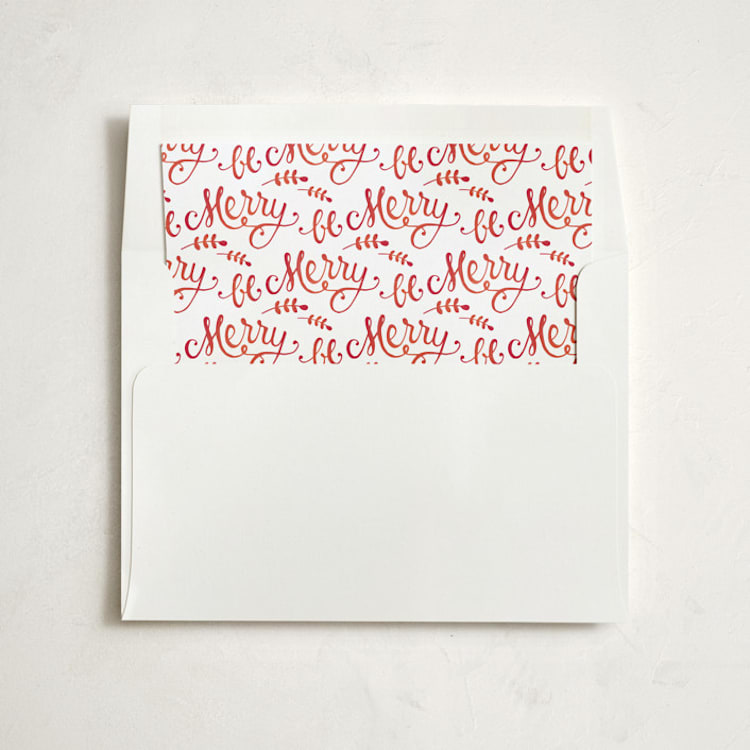 erry be Merry be Merry be
be Merry be Merry be Merr
rry be Merry be Merry be
Merry be Merry be Merr